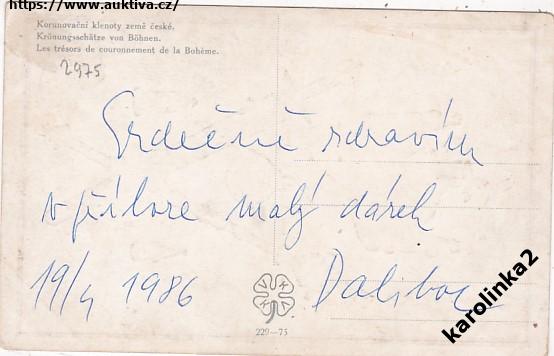 https://www.auktiva.cz/
Korunovační klenoty země české.
Krönungsschätze von Böhnen.
Les trésors de couronnement de la Bohème.
2975
Srdečně zdravím
v příloze malý dárek
19/4 1986 Dalibor
VKVA
229—75
karolinka2